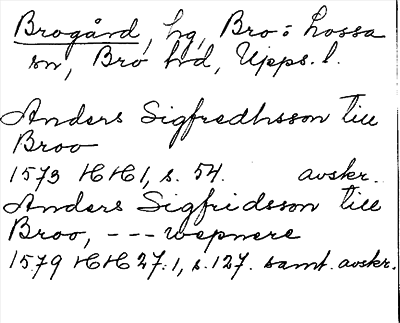 Brogård, hg, Bro = Lossa
sn, Bro hd, Upps. l.
Anders Sigfredhsson till
Broo
1573 HH 1, s. 54. avskr.
Anders Sigfridsson till
Broo, --- wepnere
1579 HH 27:1, s. 127. samt. avskr.